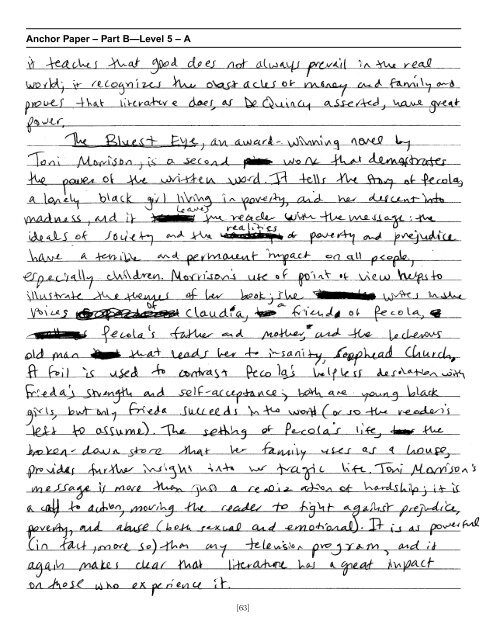 Anchor Paper – Part B—Level 5 – A
it teaches that good does not always prevail in the real
world; it recognizes the obstacles of money and family and
proves that literature does, as De Quincy asserted, have great
power.
The Bluest Eye, an award-winning novel by
Toni Morrison, is a second work that demonstrates
the power of the written word. It tells the story of Pecola,
a lonely black girl living in poverty, and her descent into
madness, and it leaves the reader with the message: the
ideals of society and the realities of poverty and prejudice
have a terrible and permanent impact on all people,
especially children. Morrison's use of point of view helps to
illustrate the themes of her book; she writes in the
voices of Claudia, a friend of Pecola,
Pecola's father and mother, and the lecherous
old man that leads her to insanity, Soaphead Church.
A foil is used to contrast Pecola's helpless desolation with
Frieda's strength and self-acceptance; both are young black
girls, but only Frieda succeeds in the world (or so the reader is
left to assume). The setting of Pecola's life, the
broken-down store that her family uses as a house,
provides further insight into her tragic life. Toni Morrison's
message is more than just a realization of hardship; it is
a call to action, moving the reader to fight against prejudice,
poverty, and abuse (both sexual and emotional). It is as powerful
(in fact, more so) than any television program, and it
again makes clear that literature has a great impact
on those who experience it.
[63]